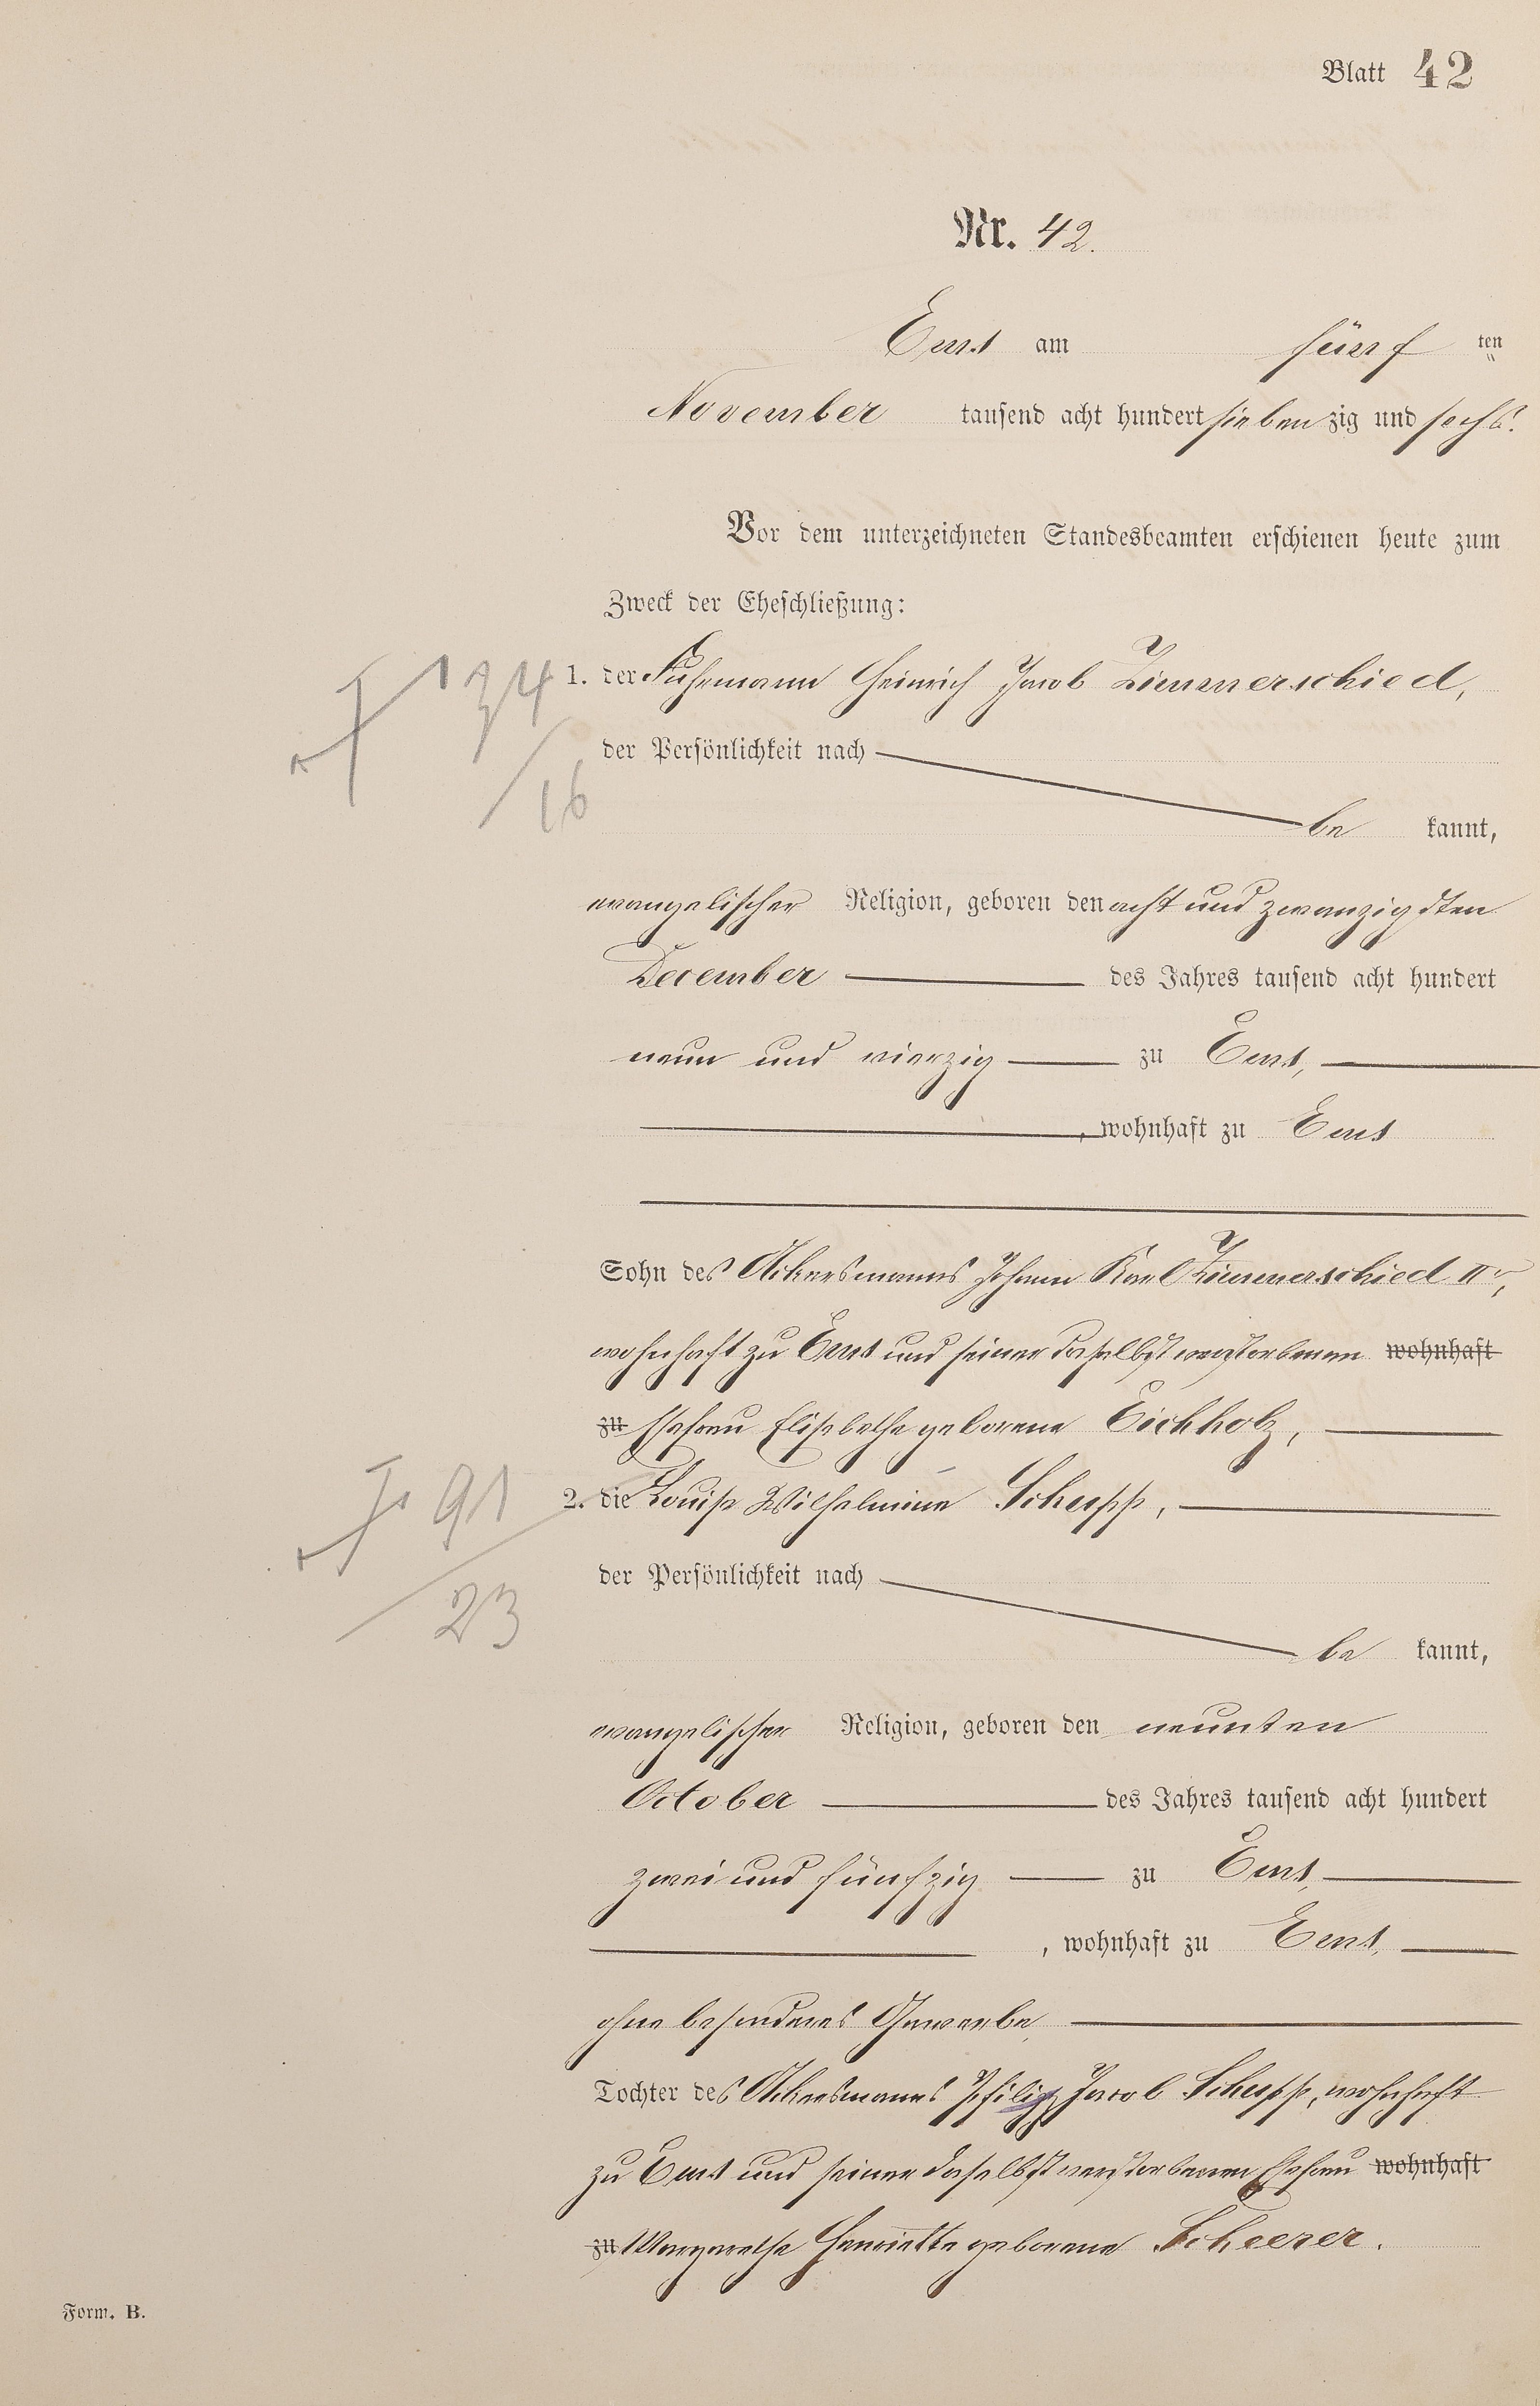 Blatt 42
Nr. 42.
Ems am fünf ten
November tausend acht hundert sieben zig und sechs.
Vor dem unterzeichneten Standesbeamten erschienen heute zum
Zweck der Eheschließung:
1. der Fuhrmann Heinrich Jacob Zimmerschied,
134
16
der Persönlichkeit nach
be kannt,
evangelischer Religion, geboren den acht und zwanzigsten
December des Jahres tausend acht hundert
neun und vierzig zu Ems,
, wohnhaft zu Ems
Sohn des Ackersmanns Johann Karl Zimmerschied IIr,
wohnhaft zu Ems und seiner daselbst verstorbenen wohnhaft
zu Ehefrau Elisabethe geborene Eichholz,
2. die Louise Wilhelmine Schupp,
91
23
der Persönlichkeit nach
be kannt,
evangelischer Religion, geboren den neunten
October des Jahres tausend acht hundert
zwei und fünfzig zu Ems,
, wohnhaft zu Ems,
ohne besonderes Gewerbe,
Tochter des Ackersmannes Philipp Jacob Schupp, wohnhaft
zu Ems und seiner daselbst verstorbenen Ehefrau wohnhaft
zu Margarethe Henriette geborene Scheerer.
Form. B.